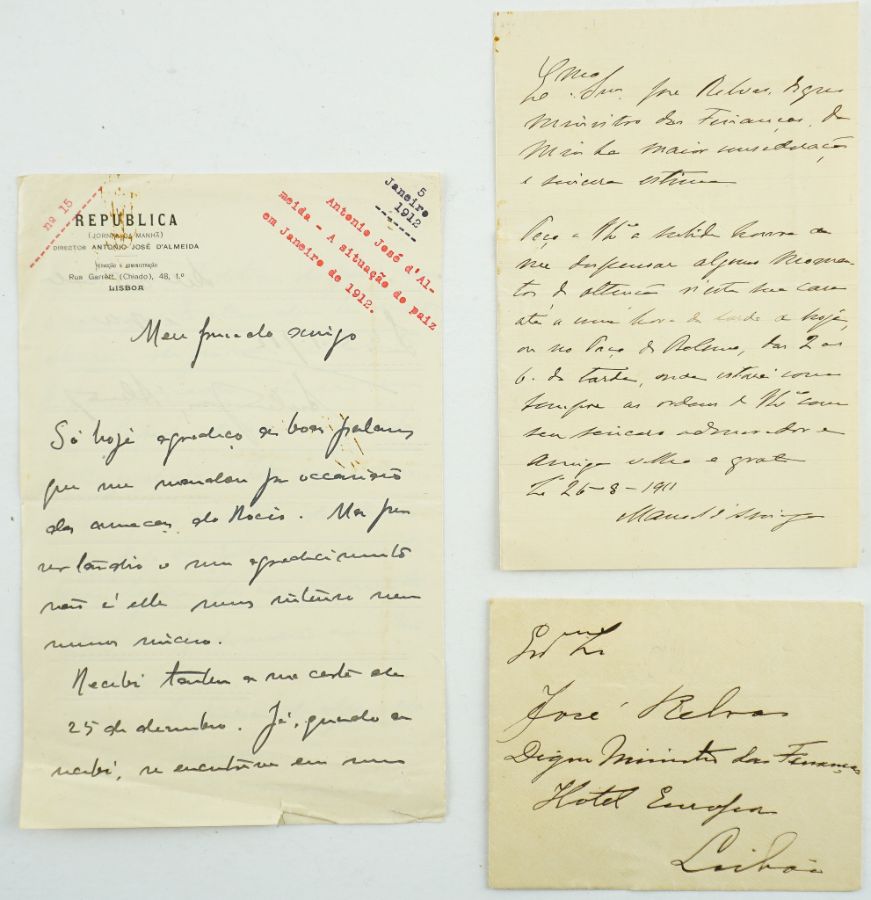 nº 15
REPUBLICA
(JORNAL DA MANHÃ)
DIRECTOR ANTONIO JOSÉ D'ALMEIDA
REDAÇÃO e ADMINISTRAÇÃO
Rua Garrett, (Chiado), 48, 1.º
LISBOA
Antonio José d'Al-
meida - A situação do paiz
em Janeiro de 1912.
5
Janeiro
1912
Meu presado amigo
Só hoje agradeço as boas palavras
que me mandou por occasião
das ameaças do Rocio. Mas por
ser tardio o meu agradecimento
não é elle menos intenso nem
menos sincero.
Recebi tambem a sua carta de
25 de dezembro. Já, quando a
recebi, se encontrava em
Exmo Snr. José Relvas, digno
Ministro das Finanças, da
Minha maior consideração
e sincera estima
Peço a V. Exª a subida honra de
me dispensar alguns momen-
tos de attenção n'esta sua casa
até a uma hora da tarde de hoje,
ou no Paço de Belem, das 2 ás
6 da tarde, onde estarei como
sempre as ordens de V. Exª como
seu sincero admirador e
amigo velho e grato
26-8-1911
Manoel d'
José Relvas
Digno Ministro das Finanças
Hotel Europa
Lisboa